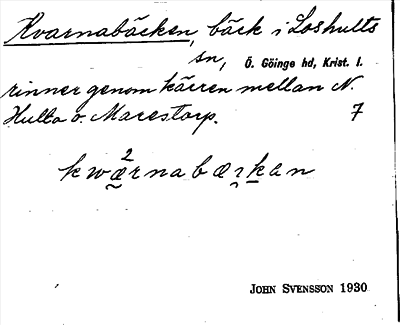 Kvarnabäcken, bäck i Loshults
sn, Ö. Göinge hd, Krist. l.
rinner genom kärren mellan N.
Hulta o. Marestorp. 7
2
kwærnabækan
JOHN SVENSSON 1930